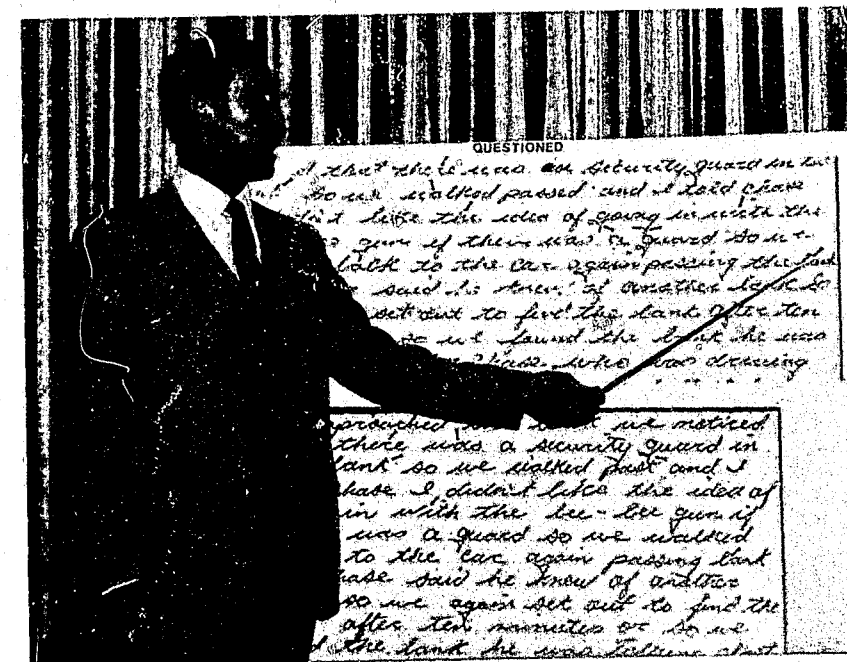 QUESTIONED
that there was an security guard in
so we walked passed and I told chase
like the idea of going in with the
gun if their was a guard so we
to the car again passing the bank
said he knew of another bank so
set out to find the bank after ten
so we found the bank he was
who was driving
we noticed
there was a security guard in
bank so we walked past and I
chase I didn't like the idea of
in with the bee-bee gun if
was a guard so we walked
to the car again passing bank
hase said he knew of another
so we again set out to find the
after ten minutes or so we
the bank he was talking about